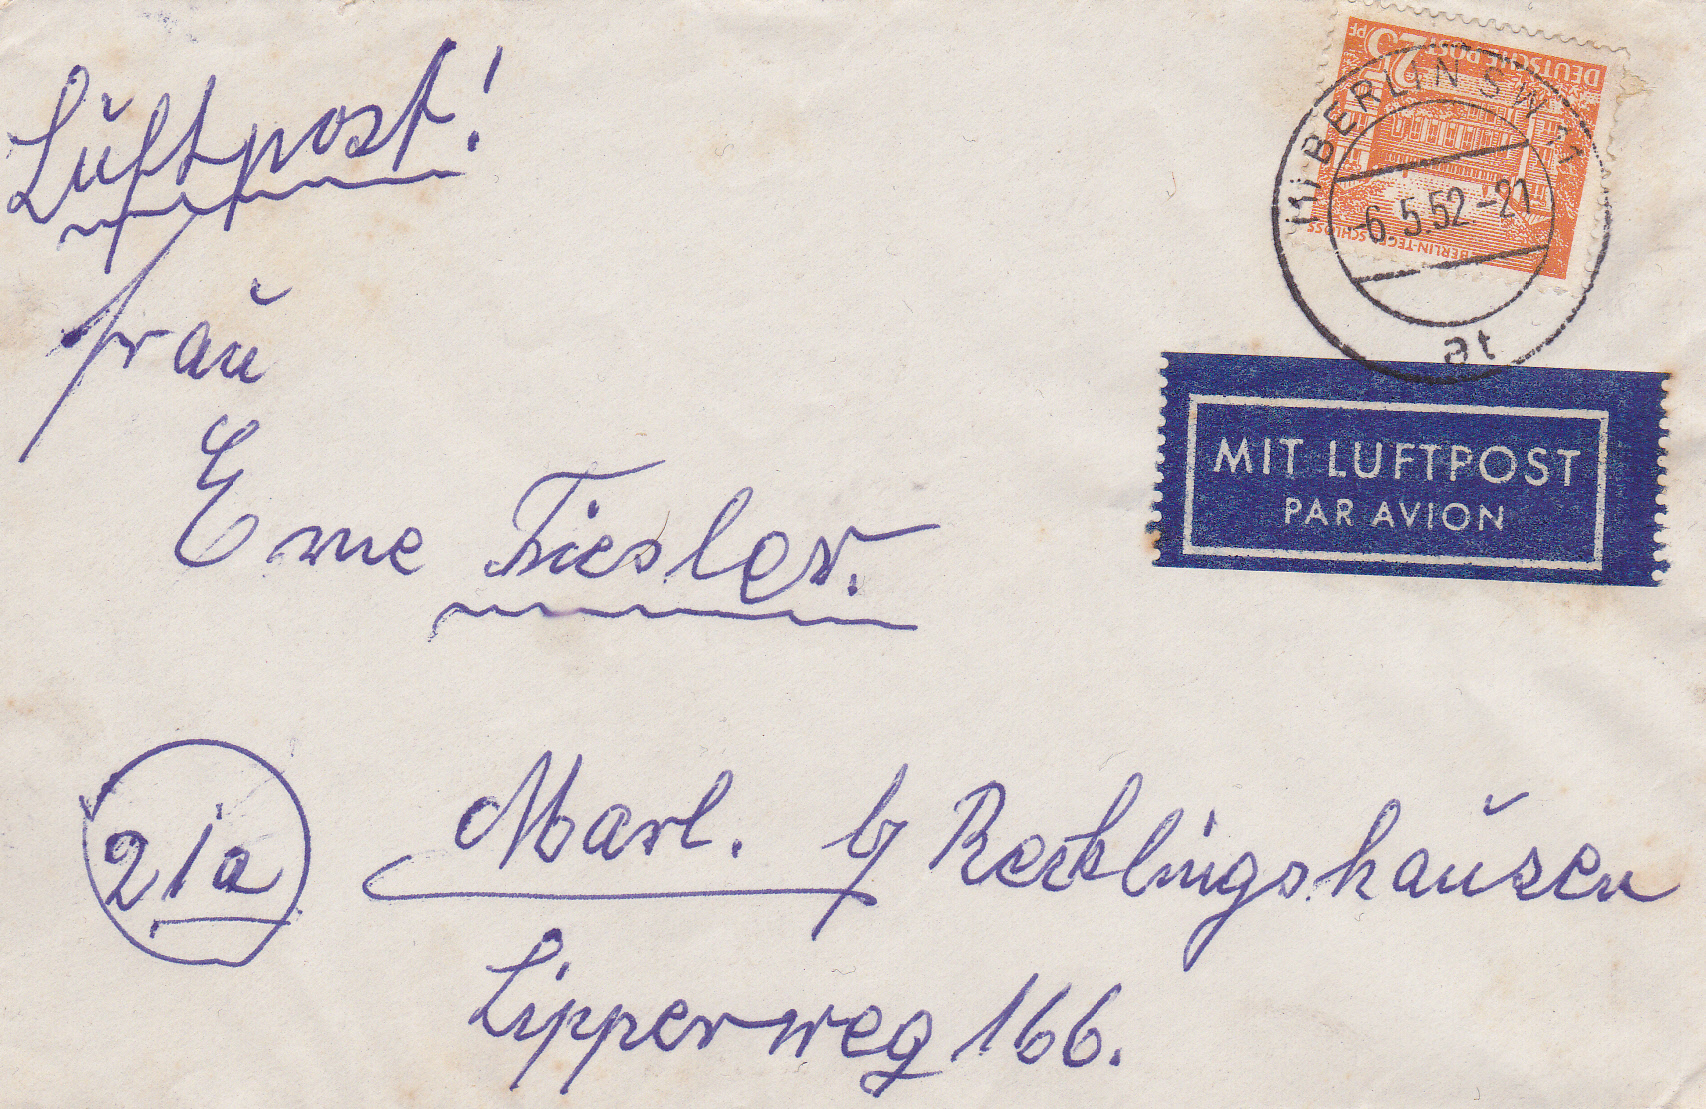 Luftpost!
Frau
Erne Fiesler.
21a
Marl. b/ Recklingshausen
Lipperweg 166.
25 PF
DEUTSCHE POST
BERLIN-TEGEL SCHLOSS
(1) BERLIN SW 11
-6.5.52-21
at
MIT LUFTPOST
PAR AVION